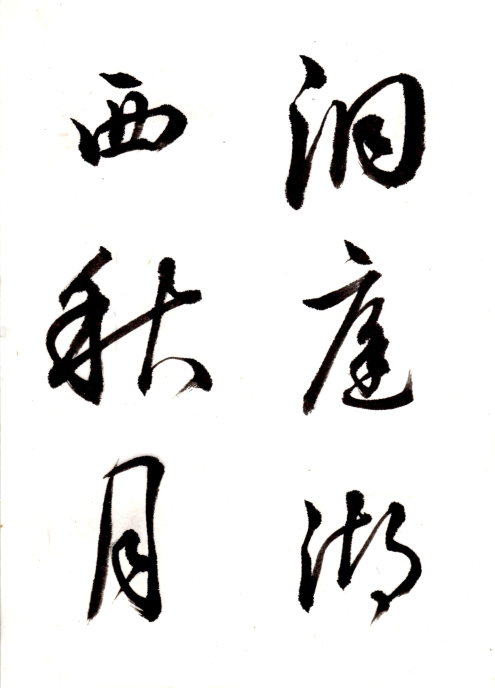 洞庭湖
西秋月